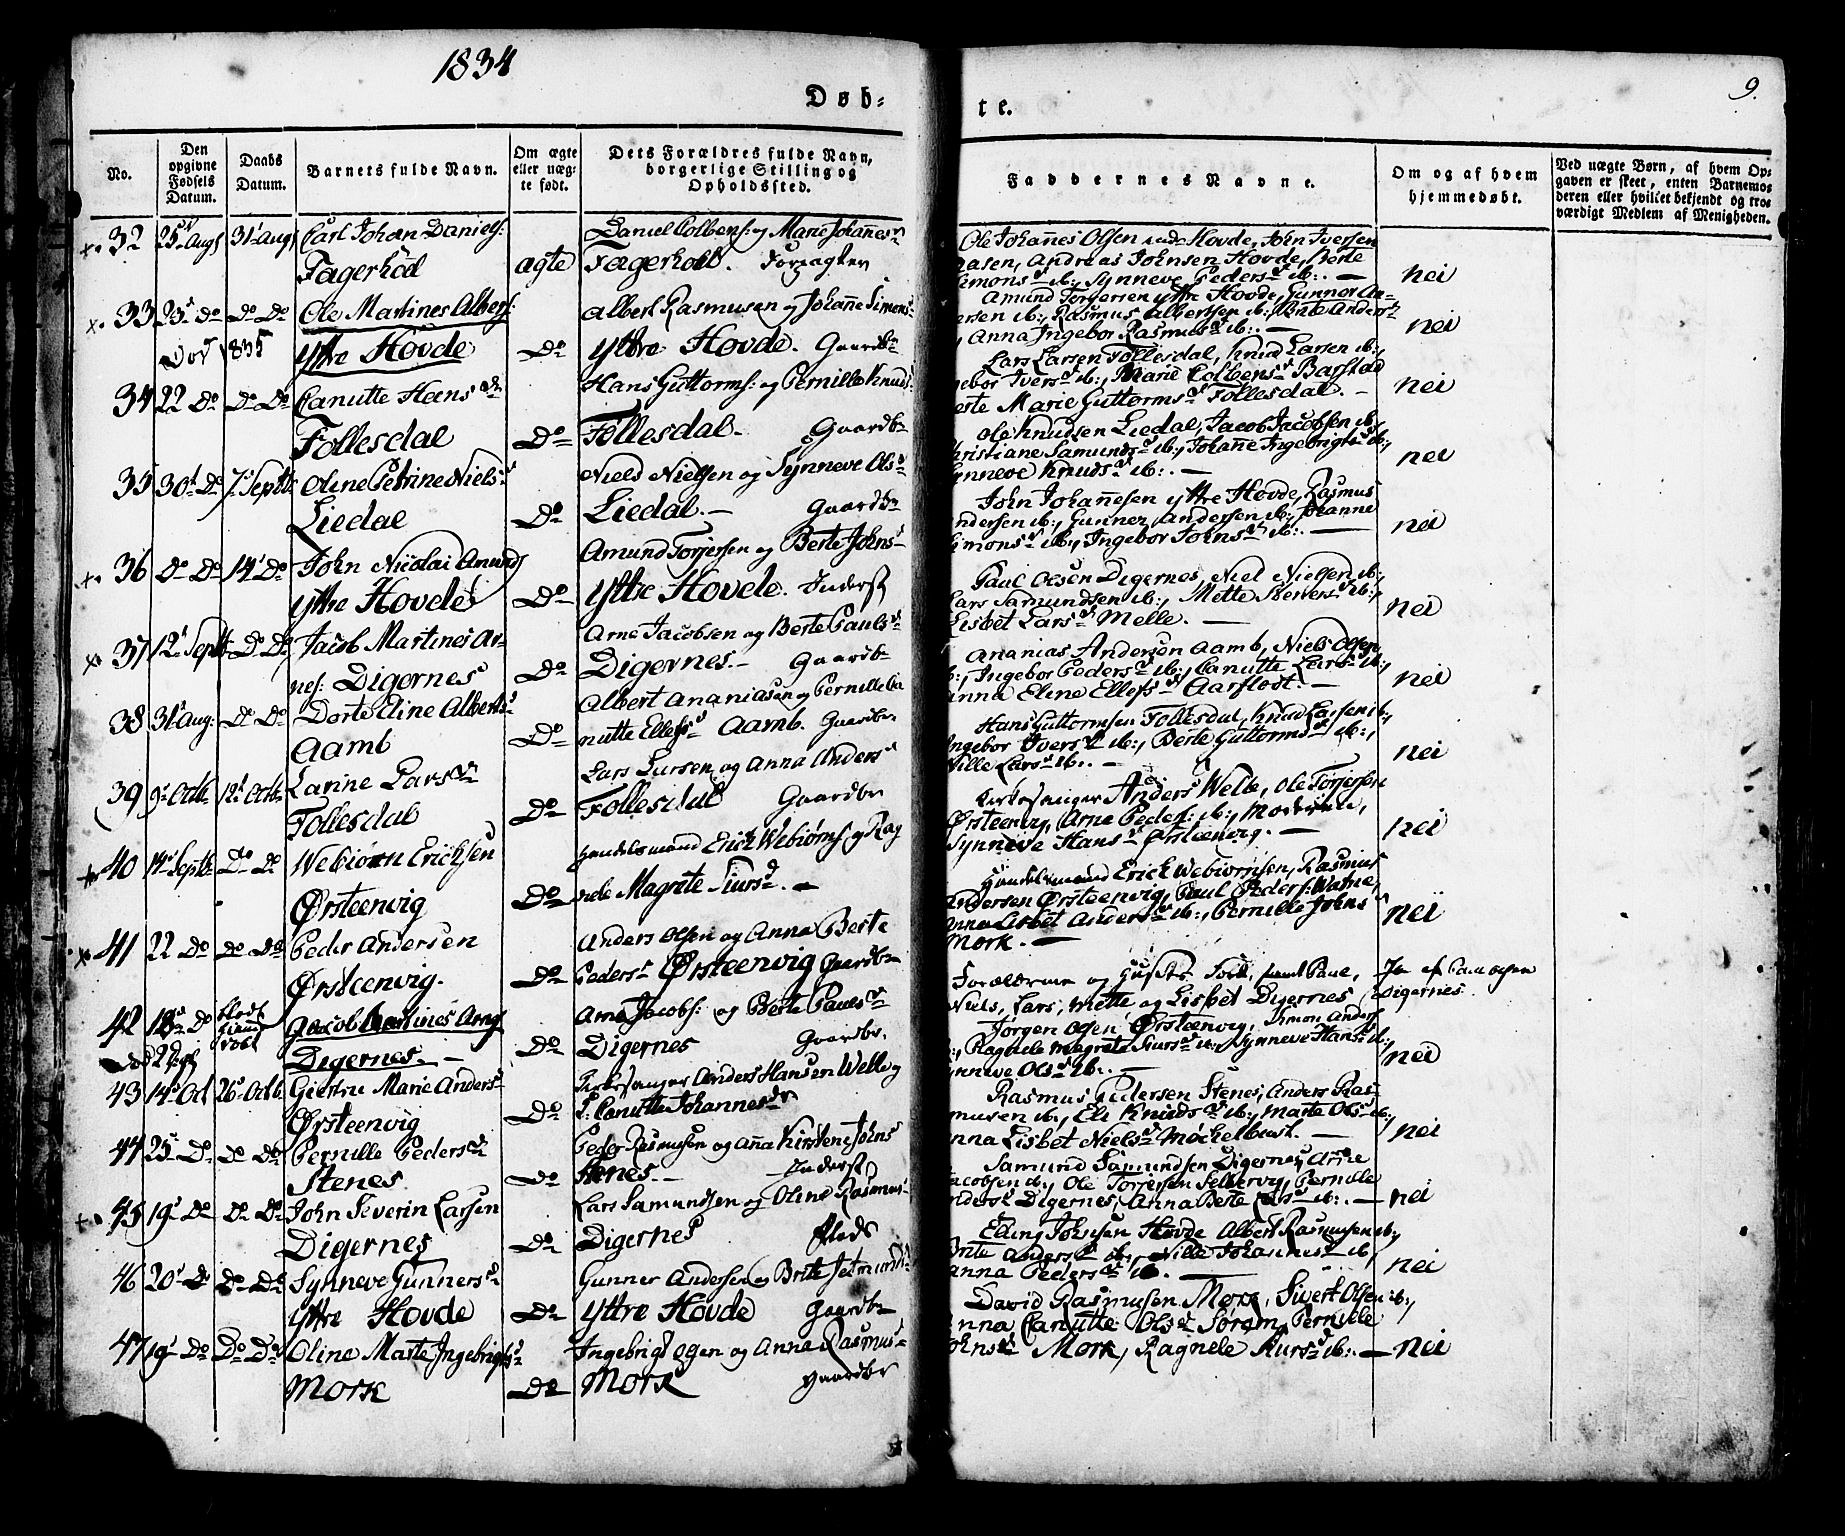 1834
Døb-
te.
9.
No.
Den opgivne Fødsels Datum.
Daabs Datum.
Barnets fulde Navn.
Om ægte eller uægte født.
Dets Forældres fulde Navn, borgerlige Stilling og Opholdssted.
Faddernes Navne.
Om og af hvem hjemmedøbt.
Ved uægte Børn, af hvem Opgaven er skeet, enten Barnemoderen eller hvilket bekjendt og troværdigt Medlem af Menigheden.
32 25 Aug 31 Aug Carl Johan Daniels: Daniel Colbens: og Marie Johannes
Fagerhol ægte Fagerhol. Forpagter
Ole Johannes Olsen Hovde, John Iversen
Aasen, Andreas Johnsen Hovde, Berte
Simons ib:, Synneve Peders ib:. — nei
33 25 Do Do Do Ole Martines Albert: Albert Rasmusen og Johanne Simons
1835 Yttre Hovde Do Yttre Hovde. Gaardbr
Amund Torgersen yttre Hovde, Gunnor An-
dersen ib:, Rasmus Albertsen ib:, Brite Anders
Anna Ingebor Rasmus ib:. — nei
34 22 Do Do Do Canutte Hans Hans Guttorms: og Pernille Knuds:
Follesdal Do Follesdal. Gaardbr
Lars Larsen Follesdal, Knud Larsen ib:,
Ingebor Ivers ib:, Marie Colbens Barstad
Berte Marie Guttorms Follesdal. — nei
35 30 Do 7 Septb Oline Petrine Niels Niels Nielsen og Synneve Ols
Liedal Do Liedal. — Gaardbr
Ole Knudsen Liedal, Jacob Jacobsen ib:
Christiane Samunds ib:, Johanne Ingebrigts ib:,
Synneve Knuds ib:. — nei
36 Do Do 14 Do John Nicolai Amunds Amund Torjersen og Berte Johns
Yttre Hovde Do Yttre Hovde. Inderst
John Johannesen yttre Hovde, Rasmus
Andersen ib:, Gunner Andersen ib:, Johanne
Simons ib:, Ingebor Johns ib:. — nei
37 12 Septb Do Do Jacob Martines Ar- Arne Jacobsen og Berte Pauls
nes: Digernes Do Digernes. — Gaardbr
Paul Olsen Digernes, Niel Nielsen ib:,
Lars Samundsen ib:, Mette Sivers ib:,
Lisbet Lars Melle. — nei
38 31 Aug: Do Do Dorte Eline Alberts Albert Ananiasen og Pernille Ca
Aamb Do nutte Ellefs Aamb. Gaardbr
Ananias Andersen Aamb, Niels Olsen
ib:, Ingebor Peders ib:, Canutte Lars ib:,
Anna Eline Ellefs Aarflot. — nei
39 9 Octb 12 Octb Larine Lars Lars Larsen og Anna Anders
Follesdal Do Follesdal Gaardbr
Hans Guttormsen Follesdal, Knud Larsen ib:,
Ingebor Ivers ib:, Berte Guttorms ib:,
Nille Lars ib:. — nei
40 14 Septb Do Do Webiørn Ericksen Handelsmand Erick Webiørns: og Rag
Ørsteenvig Do nele Magrete Siurs. —
Kirkesanger Anders Welle, Ole Torjersen
Ørsteenvig, Arne Peders: ib:, Moderinde,
Synneve Hans Ørsteenvig. — nei
41 22 Do Do Do Peder Andersen Anders Olsen og Anna Berte
Ørsteenvig. Do Peders Ørsteenvig Gaardbr
Handelsmand Erick Webiørnsen, Rasmus
Andersen Ørsteenvig, Paul Peders: Watne,
Anna Lisbet Anders ib:, Pernille Johns
Mork. — nei
42 12 Do Jacob Martines Arnes Arne Jacobs: og Berte Pauls
Digernes. — Do Digernes Gaardbr.
Forældrene og samt Paul,
Niels, Lars, Mette og Lisbet Digernes
Ja af Paul Olsen Digernes
43 14 Oct 26 Octb Giertru Marie Anders Kirkesanger Anders Hansen Welle og
Ørsteenvig Do Canutte Johannes
Jørgen Olsen Ørsteenvig, Simon Anders
ib:, Ragnele Magrete Siurs ib:, Synneve Hans ib:,
Synneve Ols ib:. — nei
44 25 Do Do Do Pernille Peders Peder Rasmusen og Anna Kirstene Johns
Stenes Do Stenes. — Inderst
Rasmus Pedersen Stenes, Anders Ras-
musen ib:, Eli Knuds ib:, Marte Ols ib:,
Anna Lisbet Niels Møckelbust. — nei
45 19 Do Do Do John Severin Larsen Lars Samundsen og Oline Rasmus
Digernes Do Digernes Pleds
Samund Samundsen Digernes, Arne
Jacobsen ib:, Ole Torjersen Sellervig, Pernille
Anders Digernes, Anna Berte Lars ib:. — nei
46 20 Do Do Do Synneve Gunners Gunner Andersen og Brite Jetmunds
Yttre Hovde Do Yttre Hovde Gaardbr
Elling Johnsen Hovde Albert Rasmusen ib:,
Brite Anders ib:, Nille Johannes ib:,
Anna Peders ib. — nei
47 19 Do Do Do Oline Marte Ingebrigts Ingebrigt ogen og Anne Rasmus
Mork Do Mork Gaardbr
David Rasmusen Mork, Sivert Olsen ib:,
Anna Canutte Ols Søram, Pernille
Johns Mork, Ragnele Siurs ib:. — nei